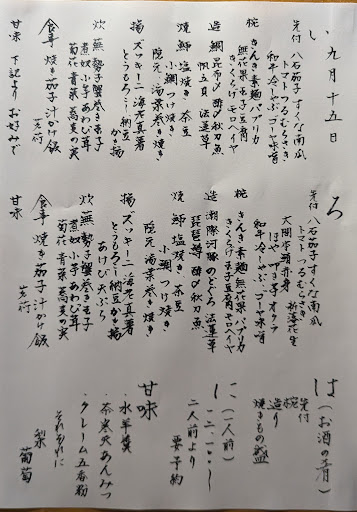 い 九月十五日
先付 八石茄子 すくな南瓜
トマト つるむらさき
和牛冷しゃぶ ゴーヤ味噌
椀 きんき素麺 パプリカ
無花果 玉子豆腐
きくらげ モロヘイヤ
造 鯛昆布〆 酢〆秋刀魚
帆立貝 法蓮草
焼 鰤塩焼き 茶豆
小鯛つけ焼き
隠元 湯葉巻き焼き
揚 ズッキーニ 海老真薯
とうもろこし 納豆かき揚
炊 無 勢子蟹巻き玉子
煮奴 小芋 あわび茸
菊花 青菜 蕎麦の実
食事 焼き茄子汁かけ飯
香付
甘味 下記よりお好みで
ろ
先付 八石茄子 すくな南瓜
トマト つるむらさき
和牛冷しゃぶ ゴーヤ味噌
椀 きんき素麺 無花果 パプリカ
きくらげ 玉子豆腐 モロヘイヤ
造
琵琶鱒 酢〆秋刀魚
焼 鰤塩焼き 茶豆
小鯛つけ焼き
隠元 湯葉巻き焼き
揚 ズッキーニ 海老真薯
とうもろこし 納豆かき揚
あけび天ぷら
炊 無 勢子蟹巻き玉子
煮奴 小芋 あわび茸
菊花 青菜 蕎麦の実
食事 焼き茄子汁かけ飯
香付
甘味
は (お酒の肴)
先付
椀
造り
焼きもの盛
に (一人前)
二人前より
要予約
甘味
・水羊羹
・茶寒天あんみつ
・クレーム五番粉
それぞれに
梨
葡萄